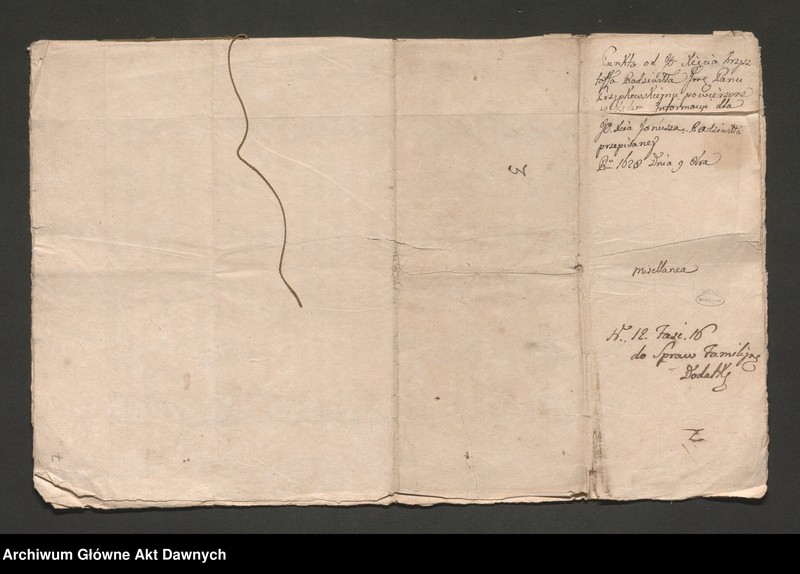 Punkta od JO. Xcia Krzysz
tofa Radziwiłła Jmć Panu
Przypkowskiemu powierzone
Informacyi dla
JO. Xcia Janusza Radziwiłła
przepisaney
Ru 1628 Dnia 9 8bra
3
miscellanea
Nr. 12. Fasc. 16
do Spraw Familijne
Dodatki
Archiwum Główne Akt Dawnych